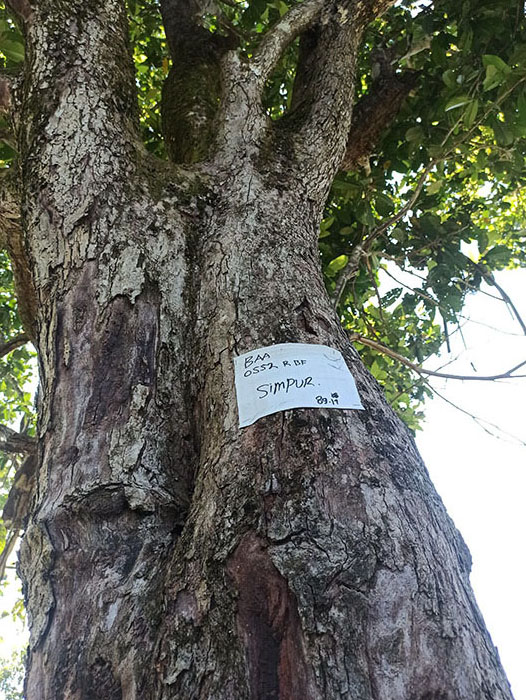 BAA
0552 R BF
SIMPUR.